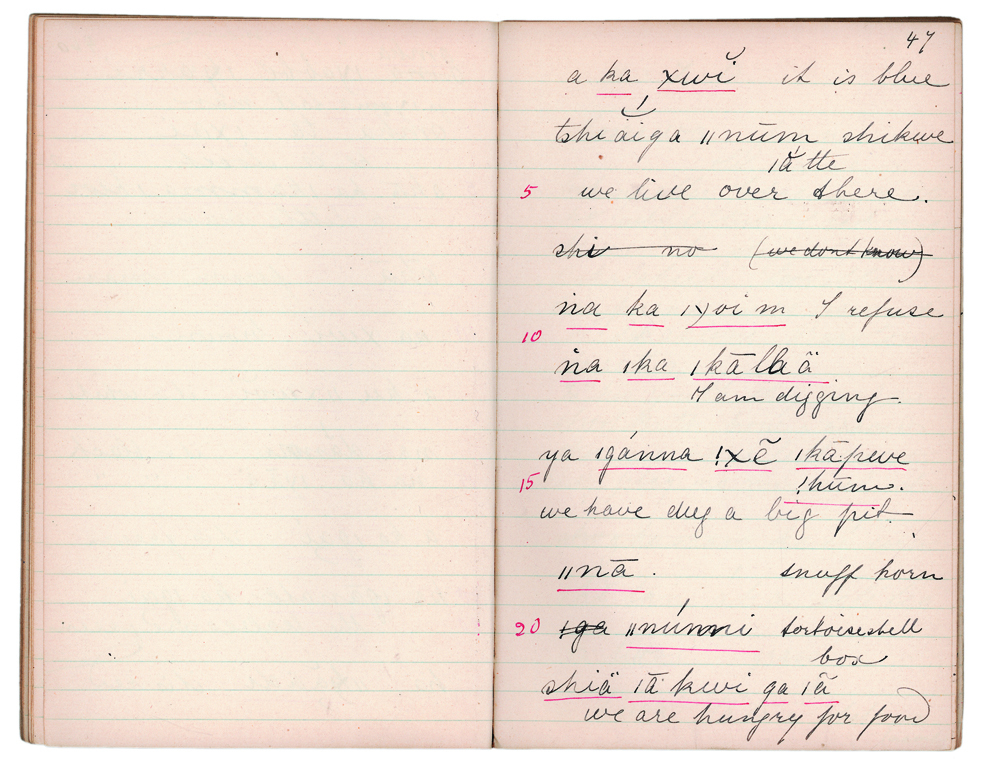 47
a ka xwĭ it is blue
tshĭāiga ǁnūm shikwe
ǀă tte
5 we live over there.
shi no (we dont know)
ṅa ka ǀɣoi m I refuse
10
ṅa ǀka ǀkāllaä
I am digging.
ya ǀgánna !xẽ ǀkāpewe
15 !hūm.
we have dug a big pit.
ǁnā. snuff horn
20 ǀga ǁnúnni tortoiseshell
box
shiä ǀā kwi ga ǀā
we are hungry for food